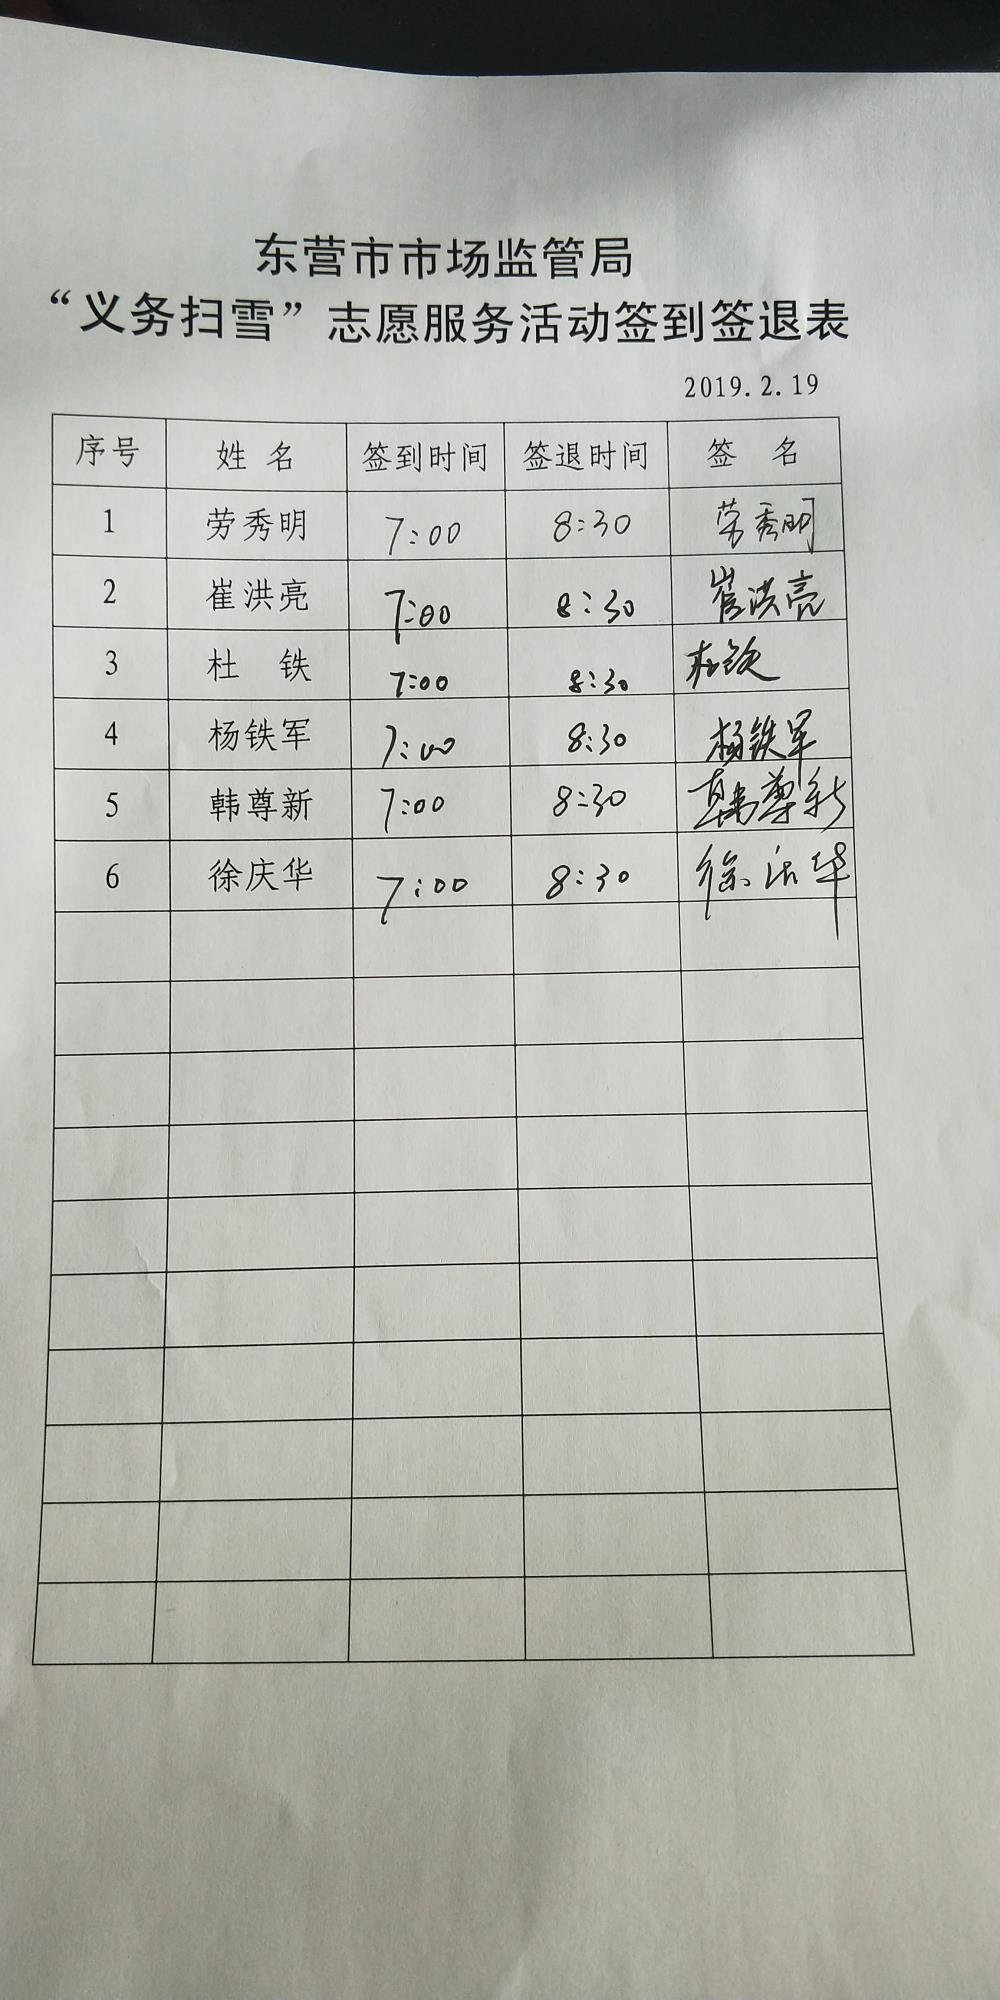 东营市市场监管局
“义务扫雪”志愿服务活动签到签退表
2019.2.19
序号 姓名 签到时间 签退时间 签名
1 劳秀明 7:00 8:30 劳秀明
2 崔洪亮 7:00 8:30 崔洪亮
3 杜铁 7:00 8:30 杜铁
4 杨铁军 7:00 8:30 杨铁军
5 韩尊新 7:00 8:30 韩尊新
6 徐庆华 7:00 8:30 徐庆华